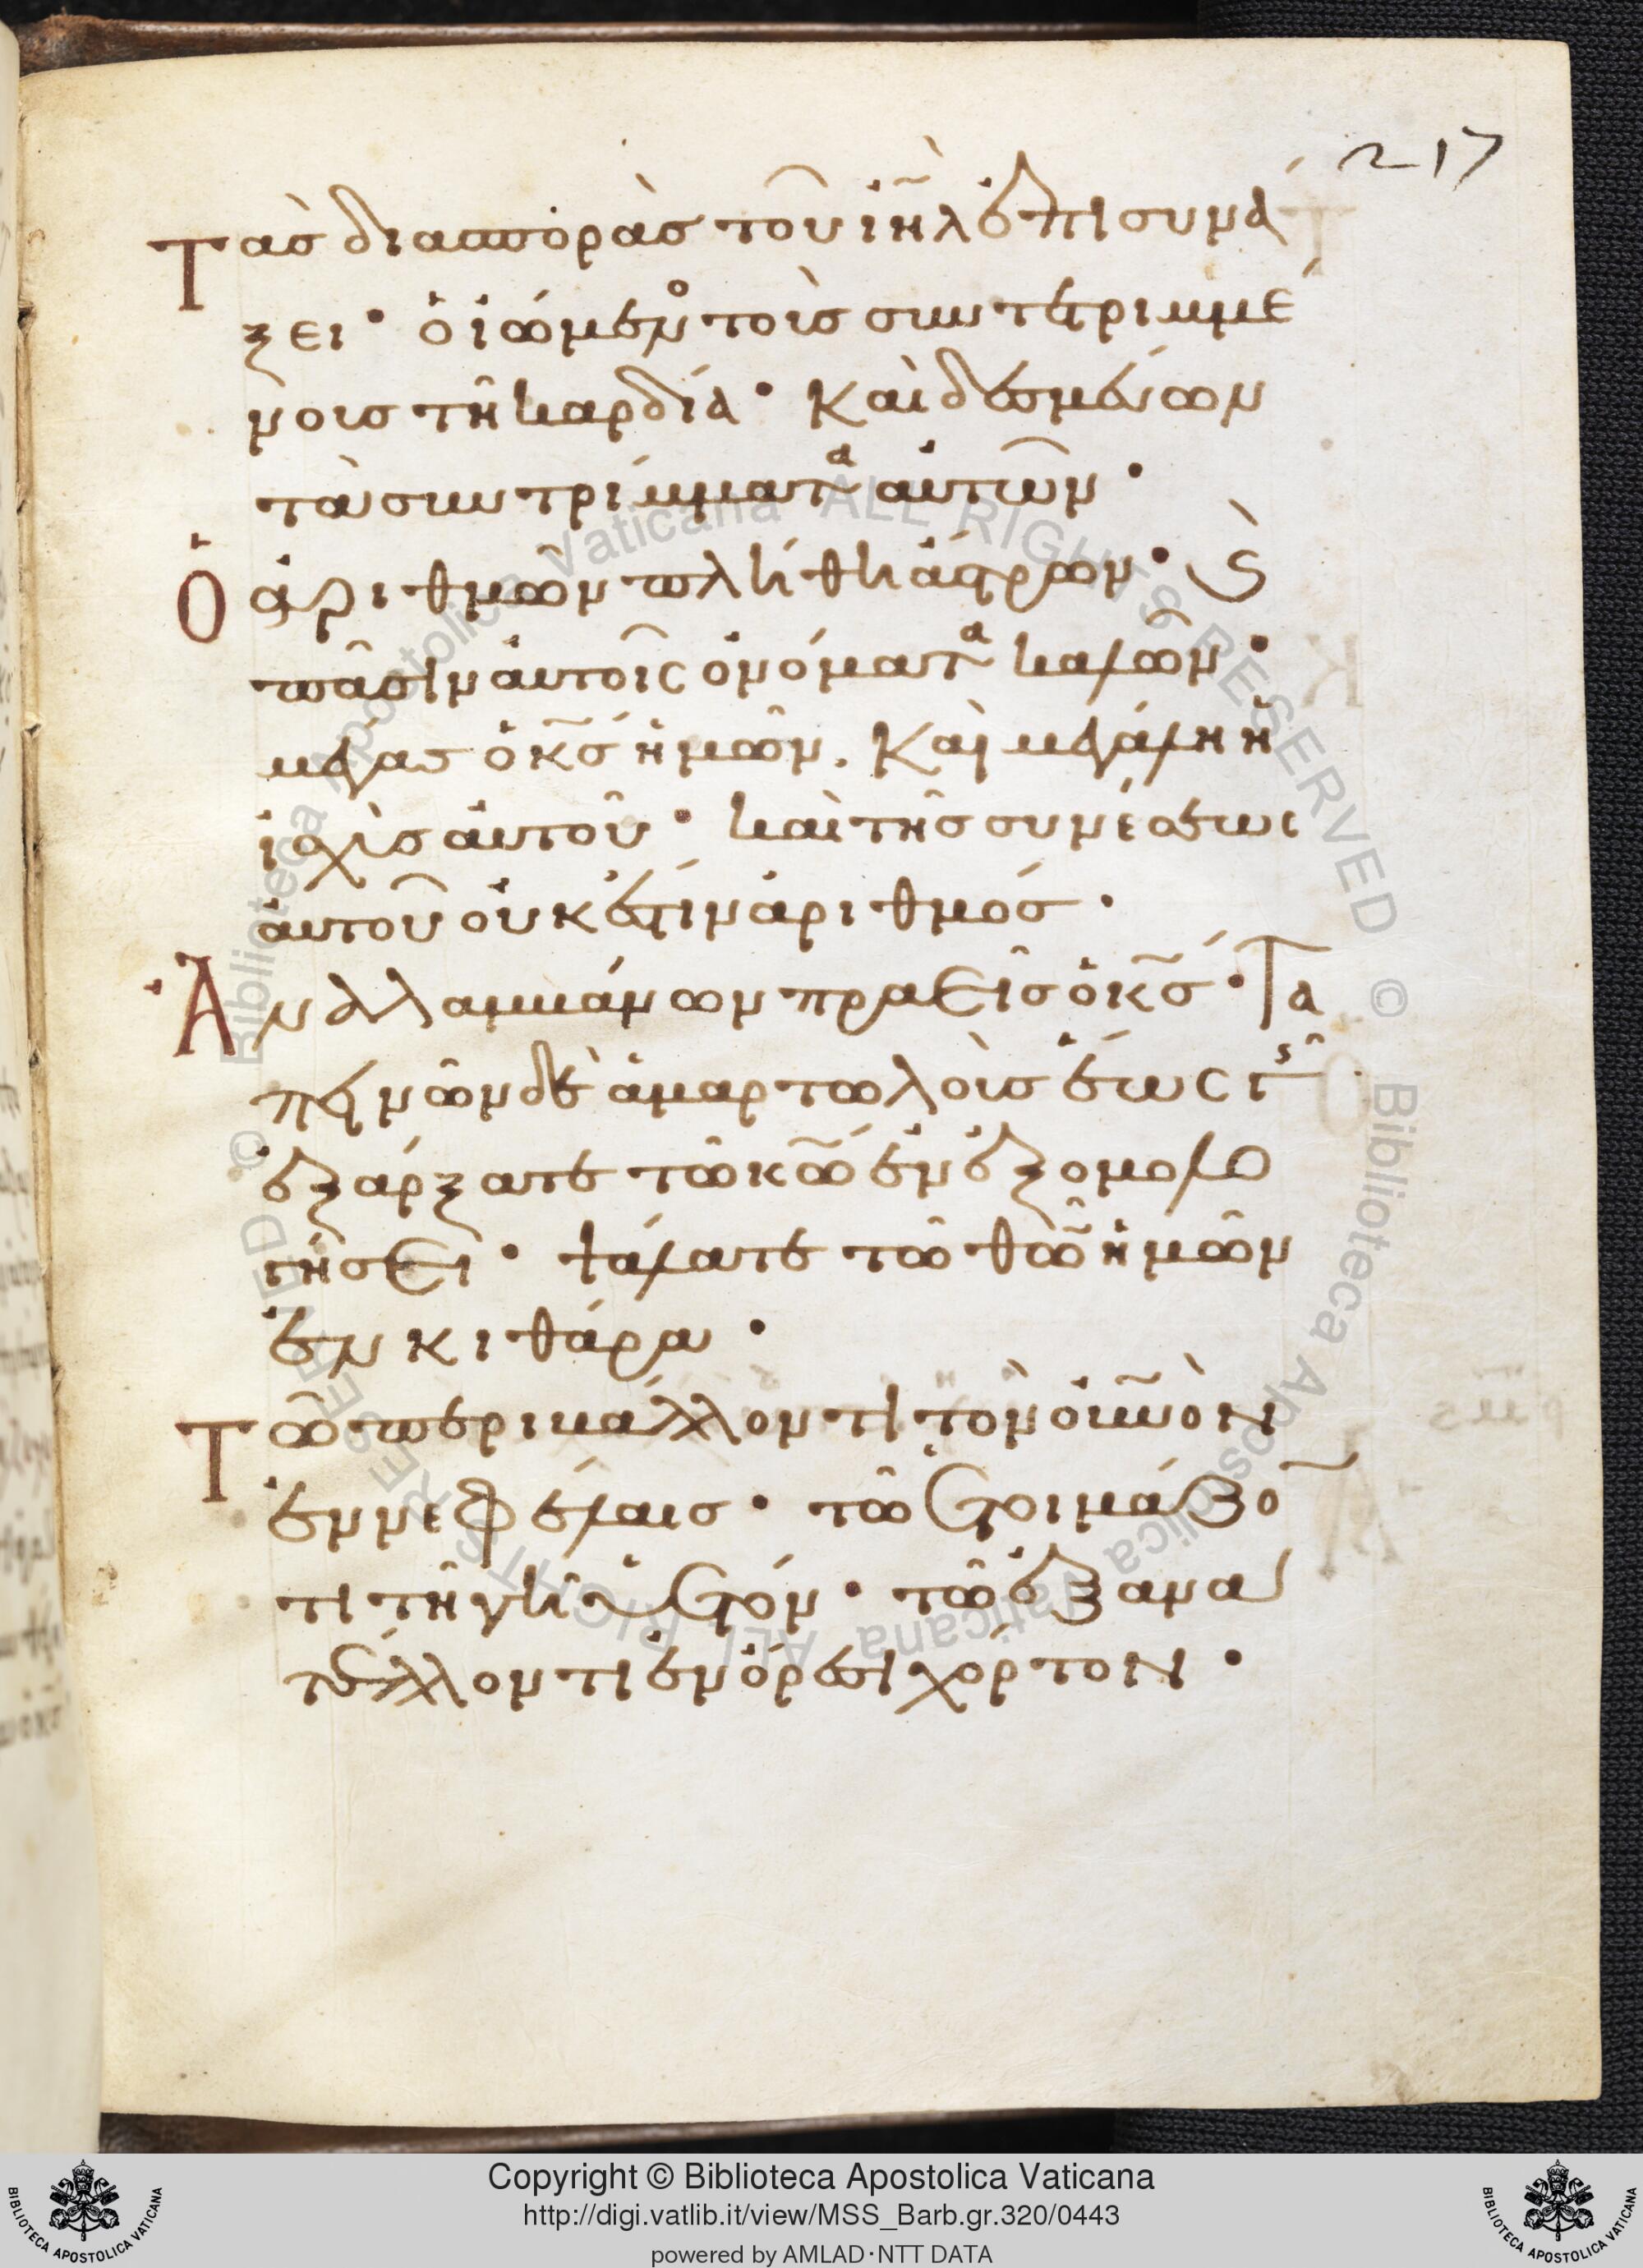 217
Τὰς διασπορὰς τοῦ ιη̃λ ἐπισυνά
ξει· ὁ ἰώμενος τοὺς συντετριμμέ
νους τὴν καρδίαν· Καὶ δεσμεύων
τὰ συντρίμματα αὐτῶν·
Ὁ ἀριθμῶν πλήθη ἄστρων· Καὶ
πᾶσιν αὐτοῖς ὀνόματα καλῶν·
μέγας ὁ κς̃ ἡμῶν. Καὶ μεγάλη ἡ
ἰσχὺς αὐτοῦ· καὶ τῆς συνέσεως
αὐτοῦ οὐκ ἔστιν ἀριθμός·
Ἀναλαμβάνων πραεῖς ὁ κς̃· Τα
πεινῶν δὲ ἁμαρτωλοὺς ἕως γῆς
ἐξάρξατε τῶ κω̃ ἐν ἐξομολο
γήσει· ψάλατε τῶ θω̃ ἡμῶν
ἐν κιθάρα·
Τῶ περιβάλλοντι τὸν οὐνὸν
ἐν νεφέλαις· τῶ ἑτοιμάζο
τι τῆ γῆ ὑετόν· τῶ ἐξανα
τέλλοντι ἐν ὄρεσι χόρτον·
© Biblioteca Apostolica Vaticana ALL RIGHTS RESERVED © Biblioteca Apostolica Vaticana ALL RIGHTS RESERVED
Copyright © Biblioteca Apostolica Vaticana
http://digi.vatlib.it/view/MSS_Barb.gr.320/0443
powered by AMLAD·NTT DATA
BIBLIOTECA APOSTOLICA VATICANA
BIBLIOTECA APOSTOLICA VATICANA